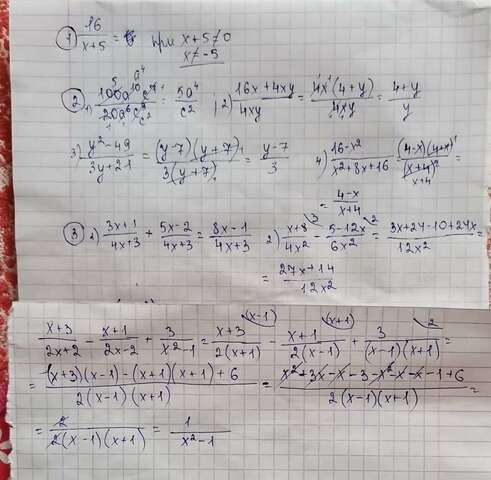 ① 16/(x+5) = при x+5≠0
x≠-5
② 1) 100a^10 c/20a^6 c^3 = 5a^4/c^2 ; 2) (16x+4xy)/4xy = 4x(4+y)/4xy = (4+y)/y
3) (y^2-49)/(3y+21) = (y-7)(y+7)/3(y+7) = (y-7)/3 4) (16-x^2)/(x^2+8x+16) = (4-x)(4+x)/(x+4)^2 =
= (4-x)/(x+4)
③ 1) (3x+1)/(4x+3) + (5x-2)/(4x+3) = (8x-1)/(4x+3) 2) (x+8)/4x^2 - (5-12x)/6x^2 = (3x+24-10+24x)/12x^2 =
= (27x+14)/12x^2
(x+3)/(2x+2) - (x+1)/(2x-2) + 3/(x^2-1) = (x+3)/2(x+1) (x-1) - (x+1)/2(x-1) (x+1) + 3/(x-1)(x+1) 2 =
= ((x+3)(x-1)-(x+1)(x+1)+6)/2(x-1)(x+1) = (x^2+3x-x-3-x^2-x-x-1+6)/2(x-1)(x+1) =
= 2/2(x-1)(x+1) = 1/(x^2-1)